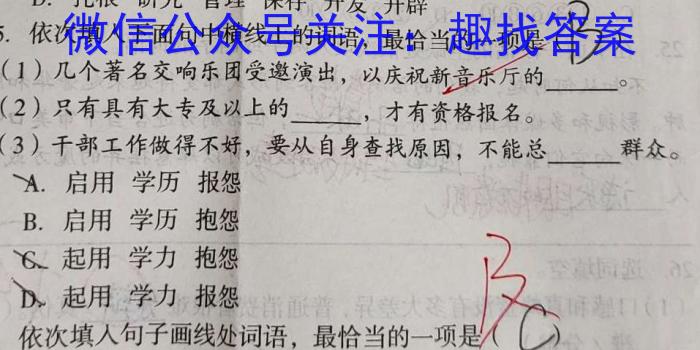 D. 扎根 研究 管理 保存 开发 开辟
5. 依次填入下面句中横线上的词语，最恰当的一项是 B
微信公众号关注：趣找答案
(1) 几个著名交响乐团受邀演出，以庆祝新音乐厅的______。
(2) 只有具有大专及以上的______，才有资格报名。
(3) 干部工作做得不好，要从自身查找原因，不能总______群众。
A. 启用 学历 报怨
B. 启用 学历 抱怨
C. 起用 学力 抱怨
D. 起用 学力 报怨
依次填入句子画线处词语，最恰当的一项是（C）
B